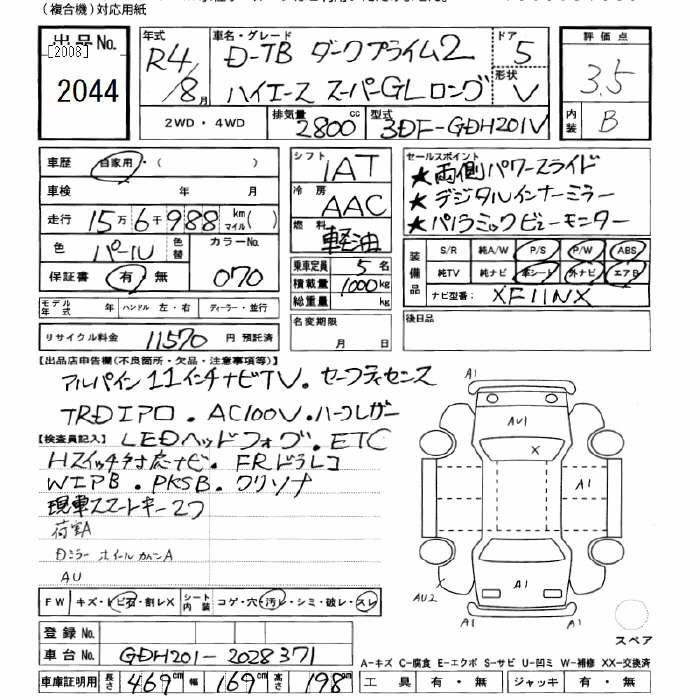 (複合機)対応用紙
出品No. [2008] 2044
年式 R4/8月
車名・グレード D-TB ダークプライム2
ハイエース スーパーGLロング
ドア 5
形状 V
評価点 3.5
内装 B
2WD・4WD
排気量 2800cc
型式 3DF-GDH201V
車歴 自家用・( )
車検 年 月
走行 15万6千988km マイル( )
色 パール 色替 カラーNo. 070
保証書 有・無
モデル年式 年 ハンドル 左・右 ディーラー・並行
リサイクル料金 11570円 預託済
シフト IAT
冷房 AAC
燃料 軽油
乗車定員 5名
積載量 1000kg
総重量 kg
名変期限 月 日
セールスポイント
★両側パワースライド
★デジタルインナーミラー
★パノラミックビューモニター
装備品 S/R 純A/W P/S P/W ABS
純TV 純ナビ 革シート 外ナビ エアB
ナビ型番: XF11NX
後日品
【出品店申告欄(不良箇所・欠品・注意事項等)】
アルパイン11インチナビTV。セーフティセンス
TRDエアロ。AC100V。ハーフレザー
【検査員記入】LEDヘッドフォグ。ETC
FRドラレコ
WIPB。PKSB。クリソナ
現車スマートキー2つ
荷室A
Dミラー ホイールカバーA
AU
FW キズ・ヒ石・割レX シート内装 コゲ・穴・汚レ・シミ・破レ・スレ
登録No.
車台No. GDH201-2028371
車庫証明用 長さ 469cm 幅 169cm 高さ 198cm
A1
AU1
X
A1
A1
AU2
A1
スペア
A-キズ C-腐食 E-エクボ S-サビ U-凹ミ W-補修 XX-交換済
工具 有・無 ジャッキ 有・無